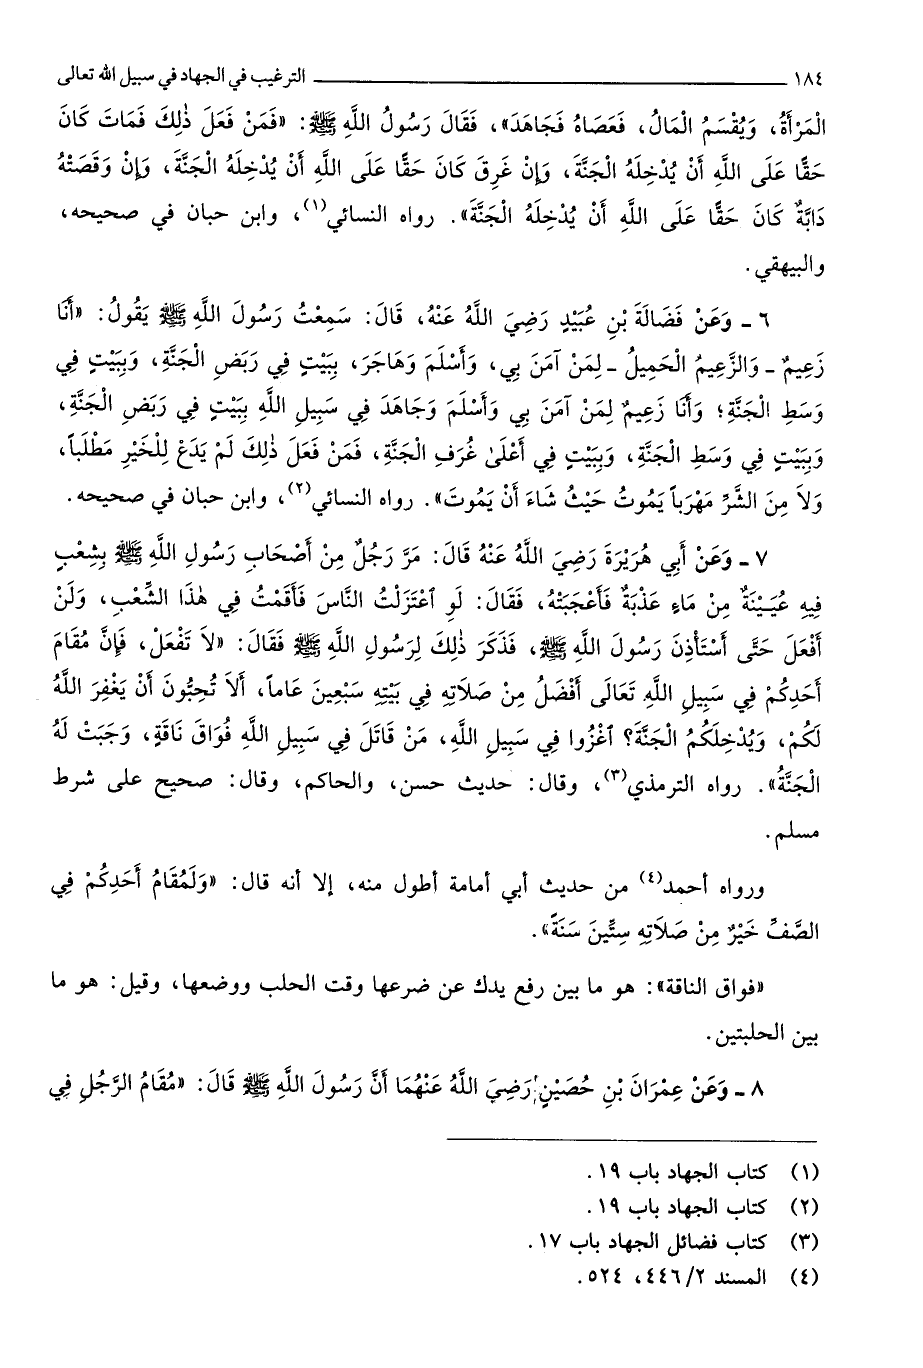 ١٨٤ ـــــــــــــــــــــــــــــــــــــــــــــــــ الترغيب في الجهاد في سبيل الله تعالى
الْمَرْأَةُ، وَيُقْسَمُ الْمَالُ، فَعَصَاهُ فَجَاهَدَ»، فَقَالَ رَسُولُ اللَّهِ ﷺ: «فَمَنْ فَعَلَ ذٰلِكَ فَمَاتَ كَانَ
حَقًّا عَلَى اللَّهِ أَنْ يُدْخِلَهُ الْجَنَّةَ، وَإِنْ غَرِقَ كَانَ حَقًّا عَلَى اللَّهِ أَنْ يُدْخِلَهُ الْجَنَّةَ، وَإِنْ وَقَصَتْهُ
دَابَّةٌ كَانَ حَقًّا عَلَى اللَّهِ أَنْ يُدْخِلَهُ الْجَنَّةَ». رواه النسائي(١)، وابن حبان في صحيحه،
والبيهقي.
٦ ـ وَعَنْ فَضَالَةَ بْنِ عُبَيْدٍ رَضِيَ اللَّهُ عَنْهُ، قَالَ: سَمِعْتُ رَسُولَ اللَّهِ ﷺ يَقُولُ: «أَنَا
زَعِيمٌ ـ وَالزَّعِيمُ الْحَمِيلُ ـ لِمَنْ آمَنَ بِي، وَأَسْلَمَ وَهَاجَرَ، بِبَيْتٍ فِي رَبَضِ الْجَنَّةِ، وَبِبَيْتٍ فِي
وَسَطِ الْجَنَّةِ؛ وَأَنَا زَعِيمٌ لِمَنْ آمَنَ بِي وَأَسْلَمَ وَجَاهَدَ فِي سَبِيلِ اللَّهِ بِبَيْتٍ فِي رَبَضِ الْجَنَّةِ،
وَبِبَيْتٍ فِي وَسَطِ الْجَنَّةِ، وَبِبَيْتٍ فِي أَعْلَىٰ غُرَفِ الْجَنَّةِ، فَمَنْ فَعَلَ ذٰلِكَ لَمْ يَدَعْ لِلْخَيْرِ مَطْلَباً،
وَلاَ مِنَ الشَّرِّ مَهْرَباً يَمُوتُ حَيْثُ شَاءَ أَنْ يَمُوتَ». رواه النسائي(٢)، وابن حبان في صحيحه.
٧ ـ وَعَنْ أَبِي هُرَيْرَةَ رَضِيَ اللَّهُ عَنْهُ قَالَ: مَرَّ رَجُلٌ مِنْ أَصْحَابِ رَسُولِ اللَّهِ ﷺ بِشِعْبٍ
فِيهِ عُيَيْنَةٌ مِنْ مَاءٍ عَذْبَةٌ فَأَعْجَبَتْهُ، فَقَالَ: لَوِ ٱعْتَزَلْتُ النَّاسَ فَأَقَمْتُ فِي هٰذَا الشِّعْبِ، وَلَنْ
أَفْعَلَ حَتَّى أَسْتَأْذِنَ رَسُولَ اللَّهِ ﷺ، فَذَكَرَ ذٰلِكَ لِرَسُولِ اللَّهِ ﷺ فَقَالَ: «لاَ تَفْعَلْ، فَإِنَّ مُقَامَ
أَحَدِكُمْ فِي سَبِيلِ اللَّهِ تَعَالَى أَفْضَلُ مِنْ صَلاَتِهِ فِي بَيْتِهِ سَبْعِينَ عَاماً، أَلاَ تُحِبُّونَ أَنْ يَغْفِرَ اللَّهُ
لَكُمْ، وَيُدْخِلَكُمُ الْجَنَّةَ؟ اغْزُوا فِي سَبِيلِ اللَّهِ، مَنْ قَاتَلَ فِي سَبِيلِ اللَّهِ فُوَاقَ نَاقَةٍ، وَجَبَتْ لَهُ
الْجَنَّةُ». رواه الترمذي(٣)، وقال: حديث حسن، والحاكم، وقال: صحيح على شرط
مسلم.
ورواه أحمد(٤) من حديث أبي أمامة أطول منه، إلا أنه قال: «وَلَمُقَامُ أَحَدِكُمْ فِي
الصَّفِّ خَيْرٌ مِنْ صَلاَتِهِ سِتِّينَ سَنَةً».
«فواق الناقة»: هو ما بين رفع يدك عن ضرعها وقت الحلب ووضعها، وقيل: هو ما
بين الحلبتين.
٨ ـ وَعَنْ عِمْرَانَ بْنِ حُصَيْنٍ رَضِيَ اللَّهُ عَنْهُمَا أَنَّ رَسُولَ اللَّهِ ﷺ قَالَ: «مُقَامُ الرَّجُلِ فِي
(١) كتاب الجهاد باب ١٩.
(٢) كتاب الجهاد باب ١٩.
(٣) كتاب فضائل الجهاد باب ١٧.
(٤) المسند ٢/ ٤٤٦، ٥٢٤.